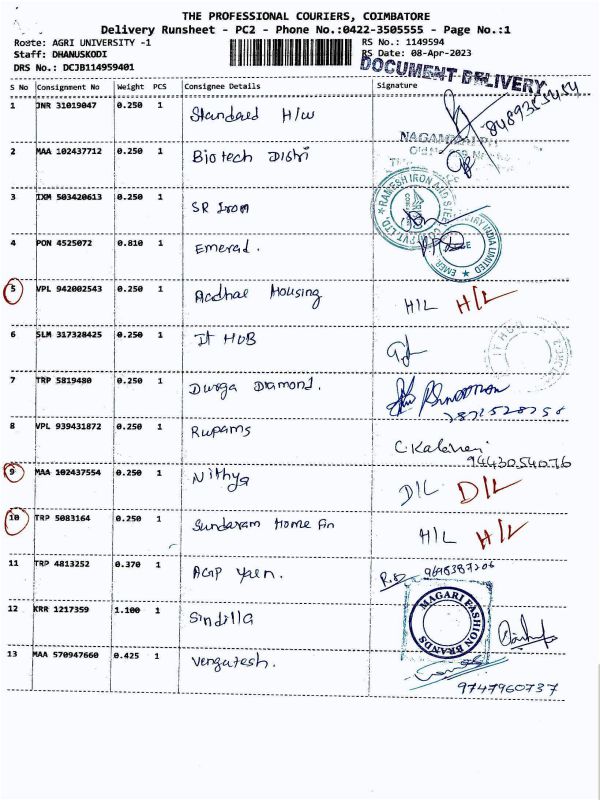 THE PROFESSIONAL COURIERS, COIMBATORE
Delivery Runsheet - PC2 - Phone No.:0422-3505555 - Page No.:1
Route: AGRI UNIVERSITY -1
RS No.: 1149594
Staff: DHANUSKODI
RS Date: 08-Apr-2023
DRS No.: DCJB114959401
DOCUMENT DELIVERY
S No Consignment No Weight PCS Consignee Details Signature
1 JNR 31019047 0.250 1 Standard H/W
2 MAA 102437712 0.250 1 Biotech Distri
3 IXM 503420613 0.250 1 SR Iron
RAMESH IRON AND STEEL CO
4 PON 4525072 0.810 1 Emerad.
INDIA LIMITED
5 VPL 942002543 0.250 1 Aadhae Housing H/L H/L
6 SLM 317328425 0.250 1 It HUB
IT HUB
7 TRP 5819480 0.250 1 Durga Diamond.
8 VPL 939431872 0.250 1 Rupams
9443054076
9 MAA 102437554 0.250 1 Nithya D/L D/L
10 TRP 5083164 0.250 1 Sundaram Home Fin H/L H/L
11 TRP 4813252 0.370 1
12 KRR 1217359 1.100 1 Sindilla
MAGARI FASHION BRANDS
13 MAA 570947660 0.425 1 Vengatesh.
9747960737